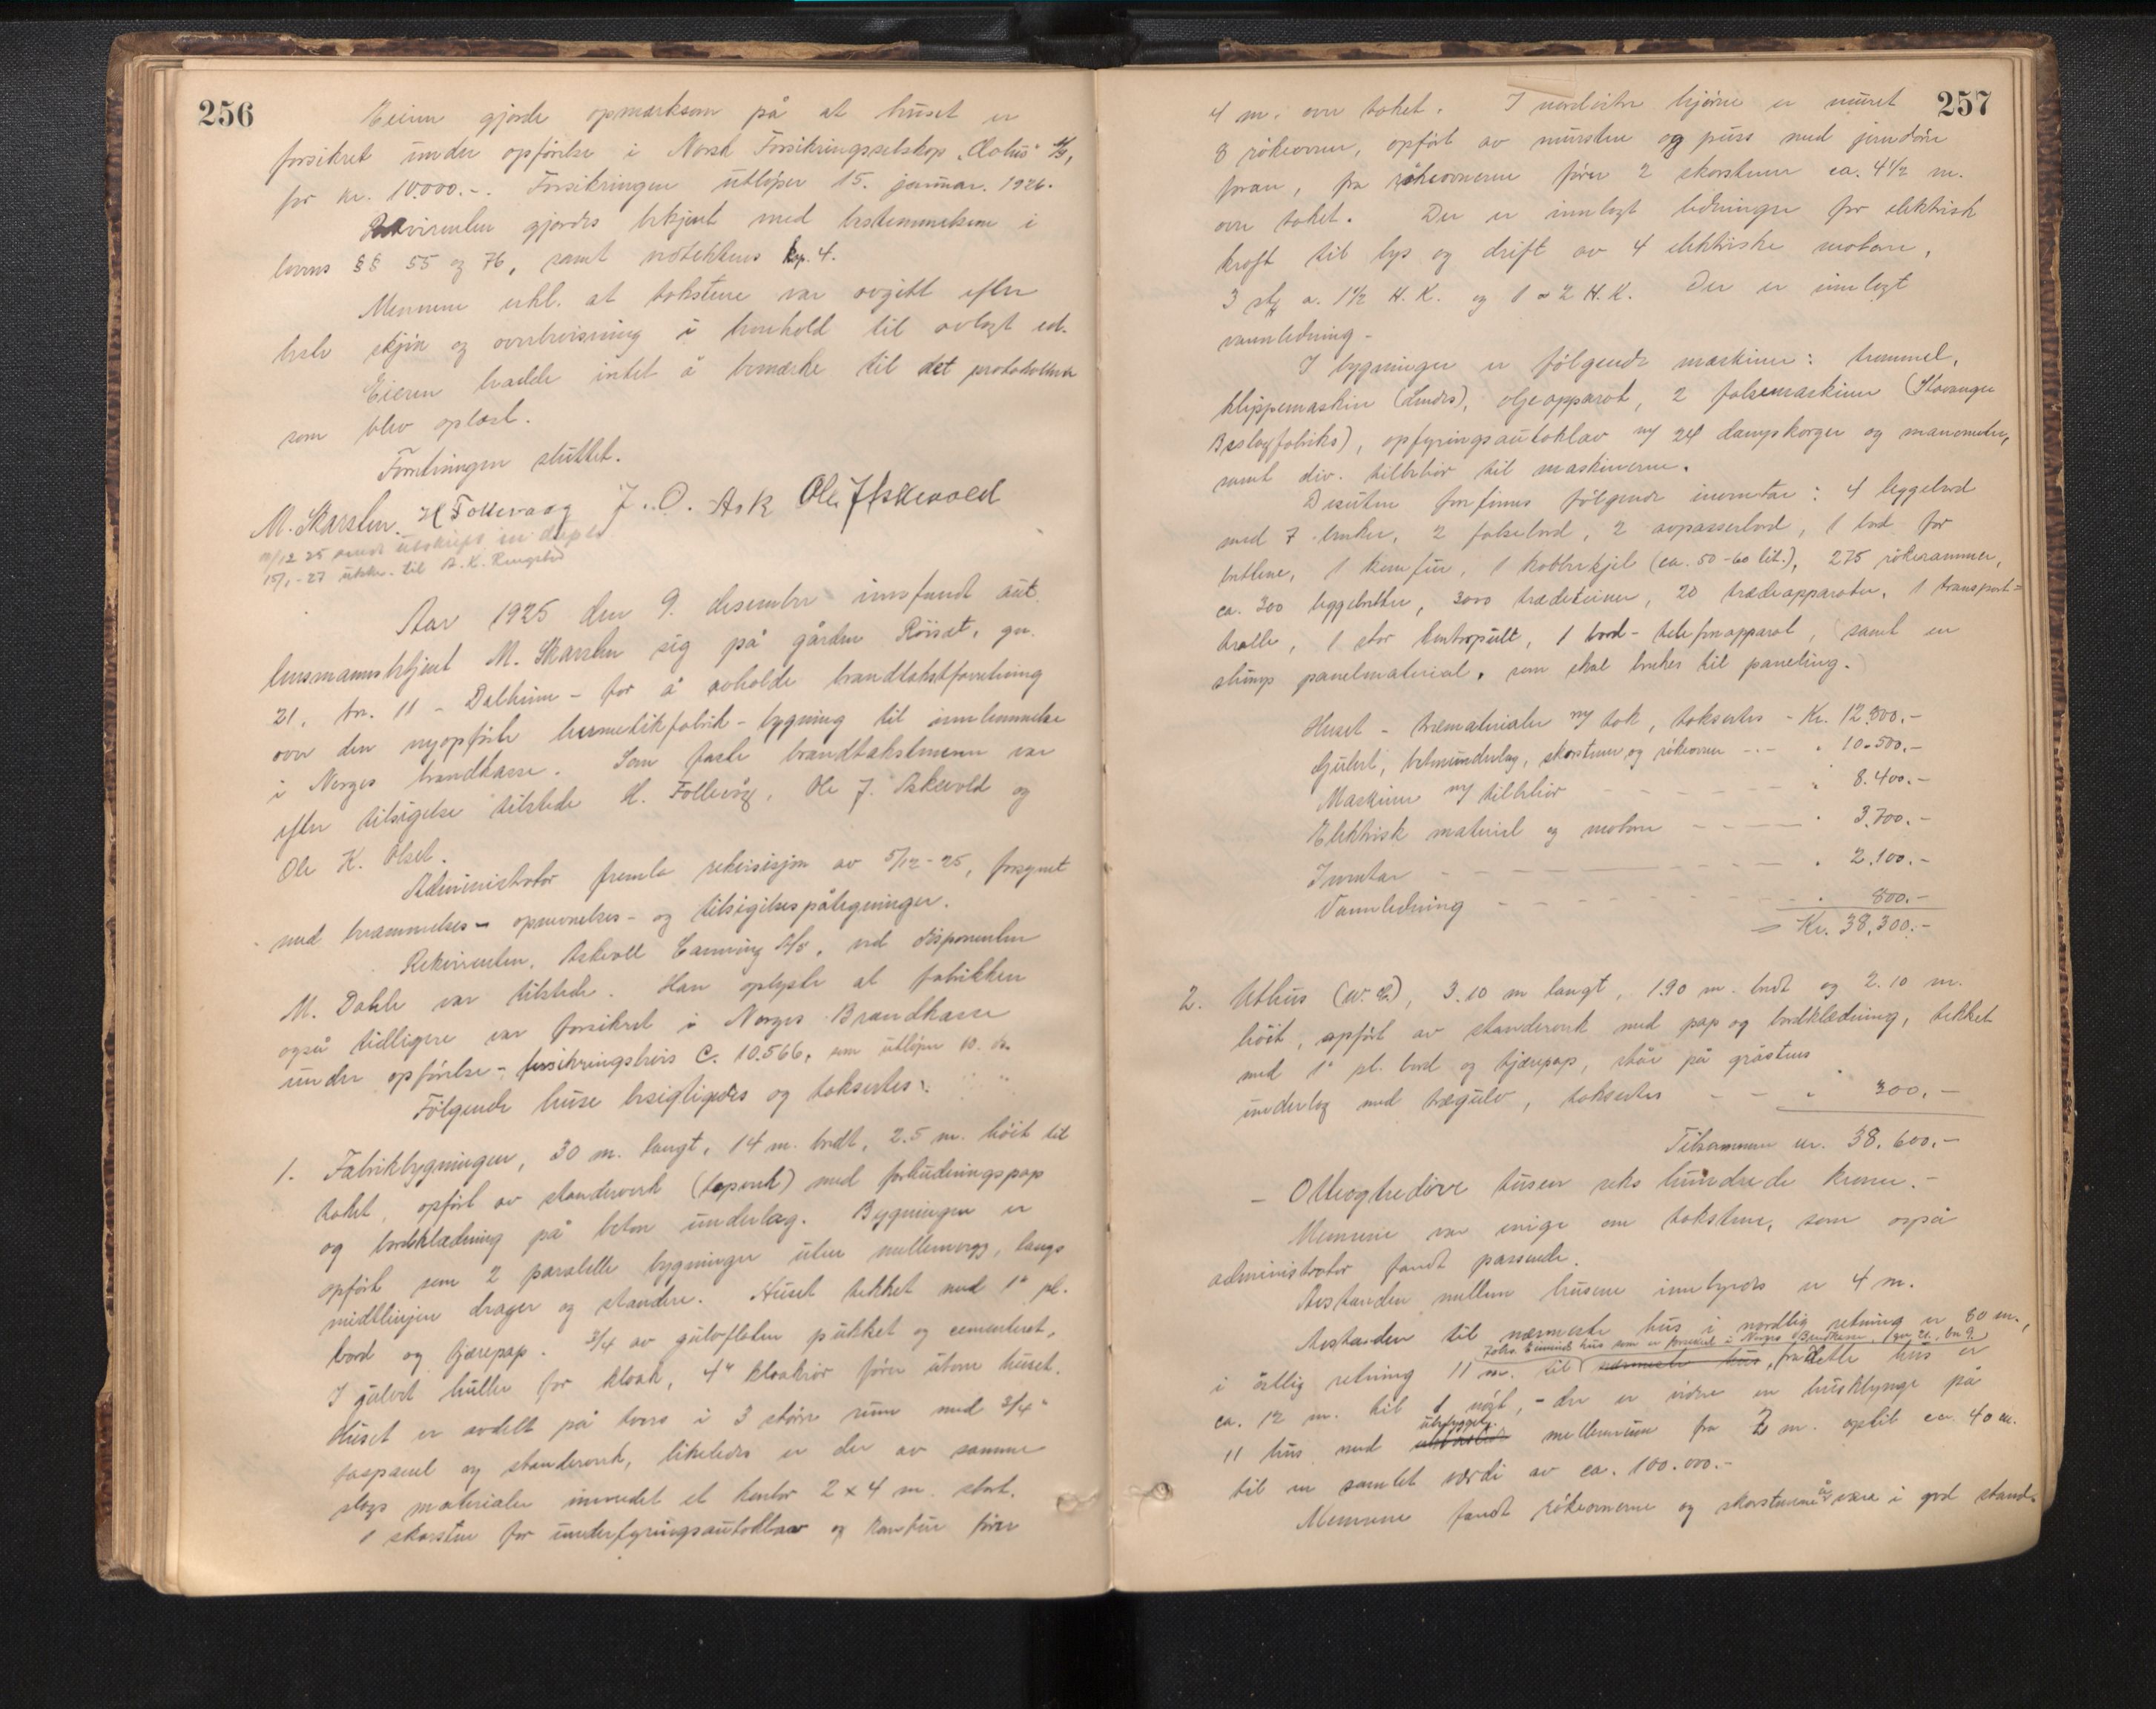 256
Eieren gjorde opmerksom på at huset er
forsikret under opførelse i Norsk Forsikringsselskap "Æolus" A/S,
for kr. 10.000.-. Forsikringen utløper 15. januar. 1926.
Rekvirenten gjordes bekjent med bestemmelsene i
lovens §§ 55 og 76, samt vedtektenes kap. 4.
Mennene erkl. at takstene var avgitt efter
beste skjøn og overbevisning i henhold til avlagt ed.
Eieren hadde intet å bemerke til det protokollerte
som blev oplæst.
Forretningen sluttet.
M. Skarsten. H Follevaag J. O. Ask Ole J Askevold
15/1-27 utskr. til A. K.
Aar 1925 den 9. desember innfandt sut.
lensmannsbetjent M. Skarsten sig på gården Röiset, gn.
21, bn. 11 - Dalheim - for å avholde brandtakstforretning
over den nyopførte hermetikfabrik-bygning til innlemmelse
i Norges brandkasse. Som faste brandtakstmenn var
efter tilsigelse tilstede H. Follevåg, Ole J. Askevold og
Ole K. Olset.
Administrator fremla rekvisisjon av 5/12-25, forsynet
med berammelses- opnevnelses- og tilsigelsespåtegninger.
Rekvirenten, Askvoll Canning A/S, ved disponenten
M. Dahle var tilstede. Han oplyste at fabrikken
også tidligere var forsikret i Norges Brandkasse
under opførelse - forsikringsbevis C. 10.566, som utløper 10. ds.
Følgende huse besigtigedes og taksertes:
1. Fabrikbygningen, 30 m. langt, 14 m. bredt, 2.5 m. høit til
taket, opført av stenderverk (tapverk) med forhudningspap
og bordklædning på beton underlag. Bygningen er
opført som 2 paralelle bygninger uten mellemvegg, langs
midtlinjen drager og stendere. Huset tekket med 1" pl.
bord og tjærepap. 3/4 av gulvflaten pukket og cementeret.
I gulvet huller for kloak, 4" kloakrør fører utom huset.
Huset er avdelt på tvers i 3 større rum med 3/4"
faspanel og stenderverk, likeledes er der av samme
slags materialer innredet et kontor 2 x 4 m. stort.
1 skorsten for underfyringsautoklav og komfur fører
257
4 m. over taket. I nordøstre hjørne er muret
8 røkeovner, opført av mursten og puss med jerndøre
foran, fra røkeovnerne fører 2 skorstene ca. 4 1/2 m.
over taket. Der er innlagt ledninger for elektrisk
kraft til lys og drift av 4 elektriske motore,
3 stk a. 1 1/2 H.K. og 1 a 2 H.K. Der er innlagt
vannledning -
I bygningen er følgende maskiner: trommel,
klippemaskin (Lundes), oljeapparat, 2 falsemaskiner (Stavanger
Beslagfabriks), opfyringsautoklav m/ 24 dampkorger og manometer,
samt div. tilbehør til maskinerne.
Desuten forfinnes følgende inventar: 4 leggebord
med 7 benker, 2 falsebord, 2 avpasserbord, 1 bord for
brettene, 1 komfur, 1 kobberkjel (ca. 50-60 lit.), 275 røkerammer,
ca. 300 leggebretter, 3000 trædeteiner, 20 trædeapparater, 1 transport=
tralle, 1 stor kontorpult, 1 bord-telefonapparat, (samt en
slump panelmaterial, som skal brukes til paneling.)
Huset - trematerialer m/ tak, taksertes - Kr. 12.800.-
Gulvet, betonunderlag, skorstene og røkeovner - - " 10.500.-
Maskiner m/ tilbehør - - - - " 8.400.-
Elektrisk materiel og motore - - - " 3.700.-
Inventar - - - - " 2.100.-
Vannledning - - - - " 800.-
= Kr. 38.300.-
2. Uthus (w.c.), 3.10 m langt, 1.90 m. bredt og 2.10 m.
høit, opført av stenderverk med pap og bordklædning, tekket
med 1" pl. bord og tjærepap, står på gråstens
underlag med trægulv, taksertes - - " 300.-
Tilsammen kr. 38.600.-
- Otteogtredive tusen seks hundrede kroner. -
Mennene var enige om takstene, som også
administrator fandt passende.
Avstanden mellem husene innbyrdes er 4 m.
Avstanden til nærmeste hus i nordlig retning er 80 m.,
Johs. Eimunds hus som er forsikret i Norges Brandkasse, (gn. 21, bn 9.)
i østlig retning 11 m. til nærmeste hus, fra dette hus er
ca. 12 m. til 1 nøst, - der er videre en husklynge på
utbygget
11 hus med mellemrum fra 2 m. optil ca. 40 m.
til en samlet verdi av ca. 100.000.-
Mennene fandt røkeovnerne og skorstenene å være i god stand.